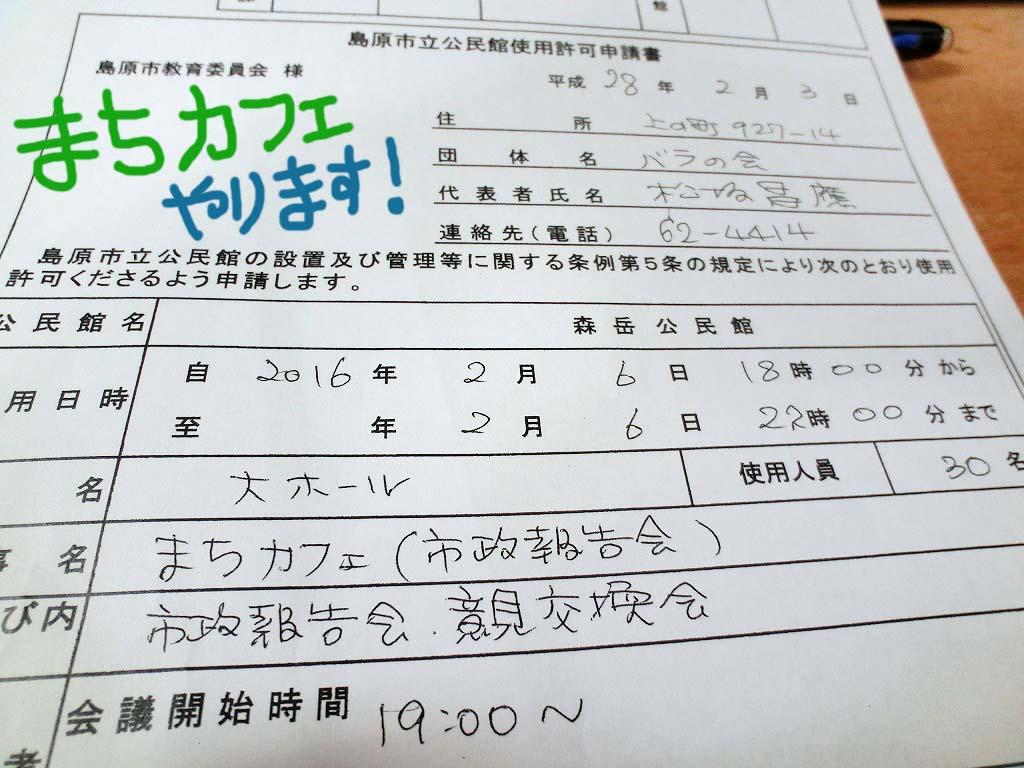 島原市立公民館使用許可申請書
島原市教育委員会 様
平成 28 年 2 月 3 日
まちカフェ
やります！
住所 上の町 927-14
団体名 バラの会
代表者氏名 松坂昌應
連絡先(電話) 62-4414
島原市立公民館の設置及び管理等に関する条例第5条の規定により次のとおり使用
許可くださるよう申請します。
公民館名 森岳公民館
用日時 自 2016 年 2 月 6 日 18時 00 分から
至 年 2 月 6 日 22時 00 分まで
名 大ホール 使用人員 30 名
事名 まちカフェ(市政報告会)
び内 市政報告会.意見交換会
会議開始時間 19:00〜
者